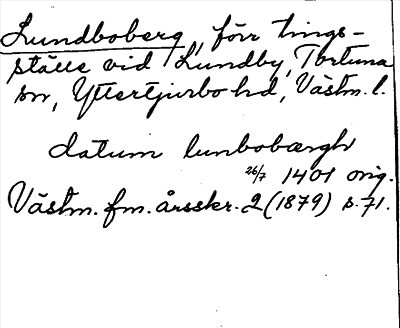 Lundboberg, förr tings-
ställe vid Lundby, Tortuna
sn, Yttertjurbo hd, Västm. l.
datum lunbobærgh
26/7 1401 orig.
Västm. fm. årsskr. 2 (1879) s. 71.